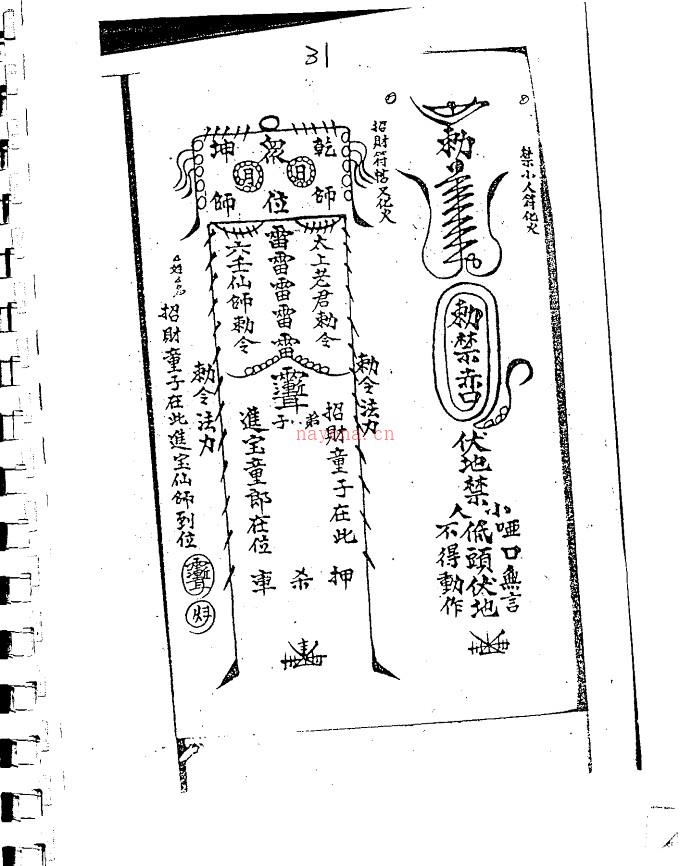 31
禁小人符化火
勅
勅禁赤口
伏地禁
小人
啞口無言
低頭伏地
不得動作
招財符帖又化火
乾
坤
師
師
位
太上老君勅令
雷雷雷雷雷
六壬仙師勅令
勅令法力
勅令法力
弟子
招財童子在此
進宝童郎在位
押
杀
車
招財童子在此進宝仙師到位
nayona.cn